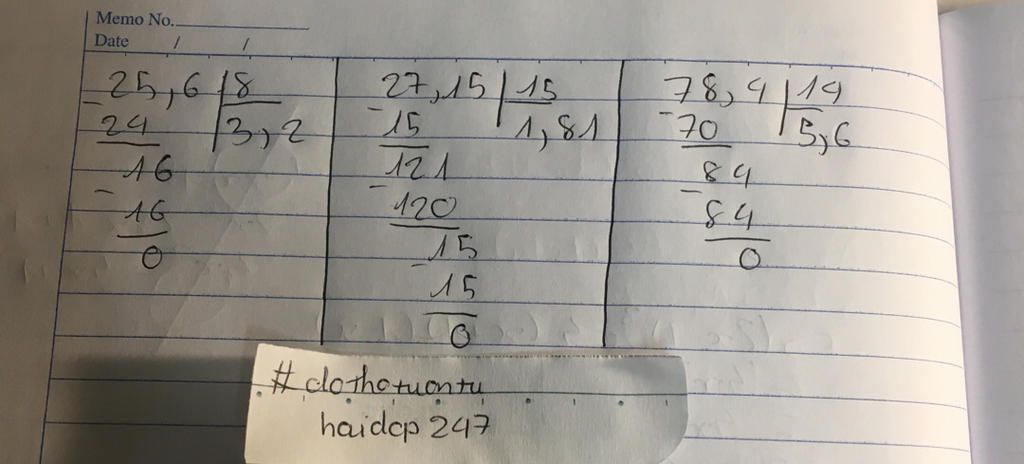 Memo No.
Date / /
25,6 8
- 24 3,2
16
- 16
0
27,15 15
- 15 1,81
121
- 120
15
- 15
0
78,4 14
- 70 5,6
84
- 84
0
#dothotuontu
haidcp 247